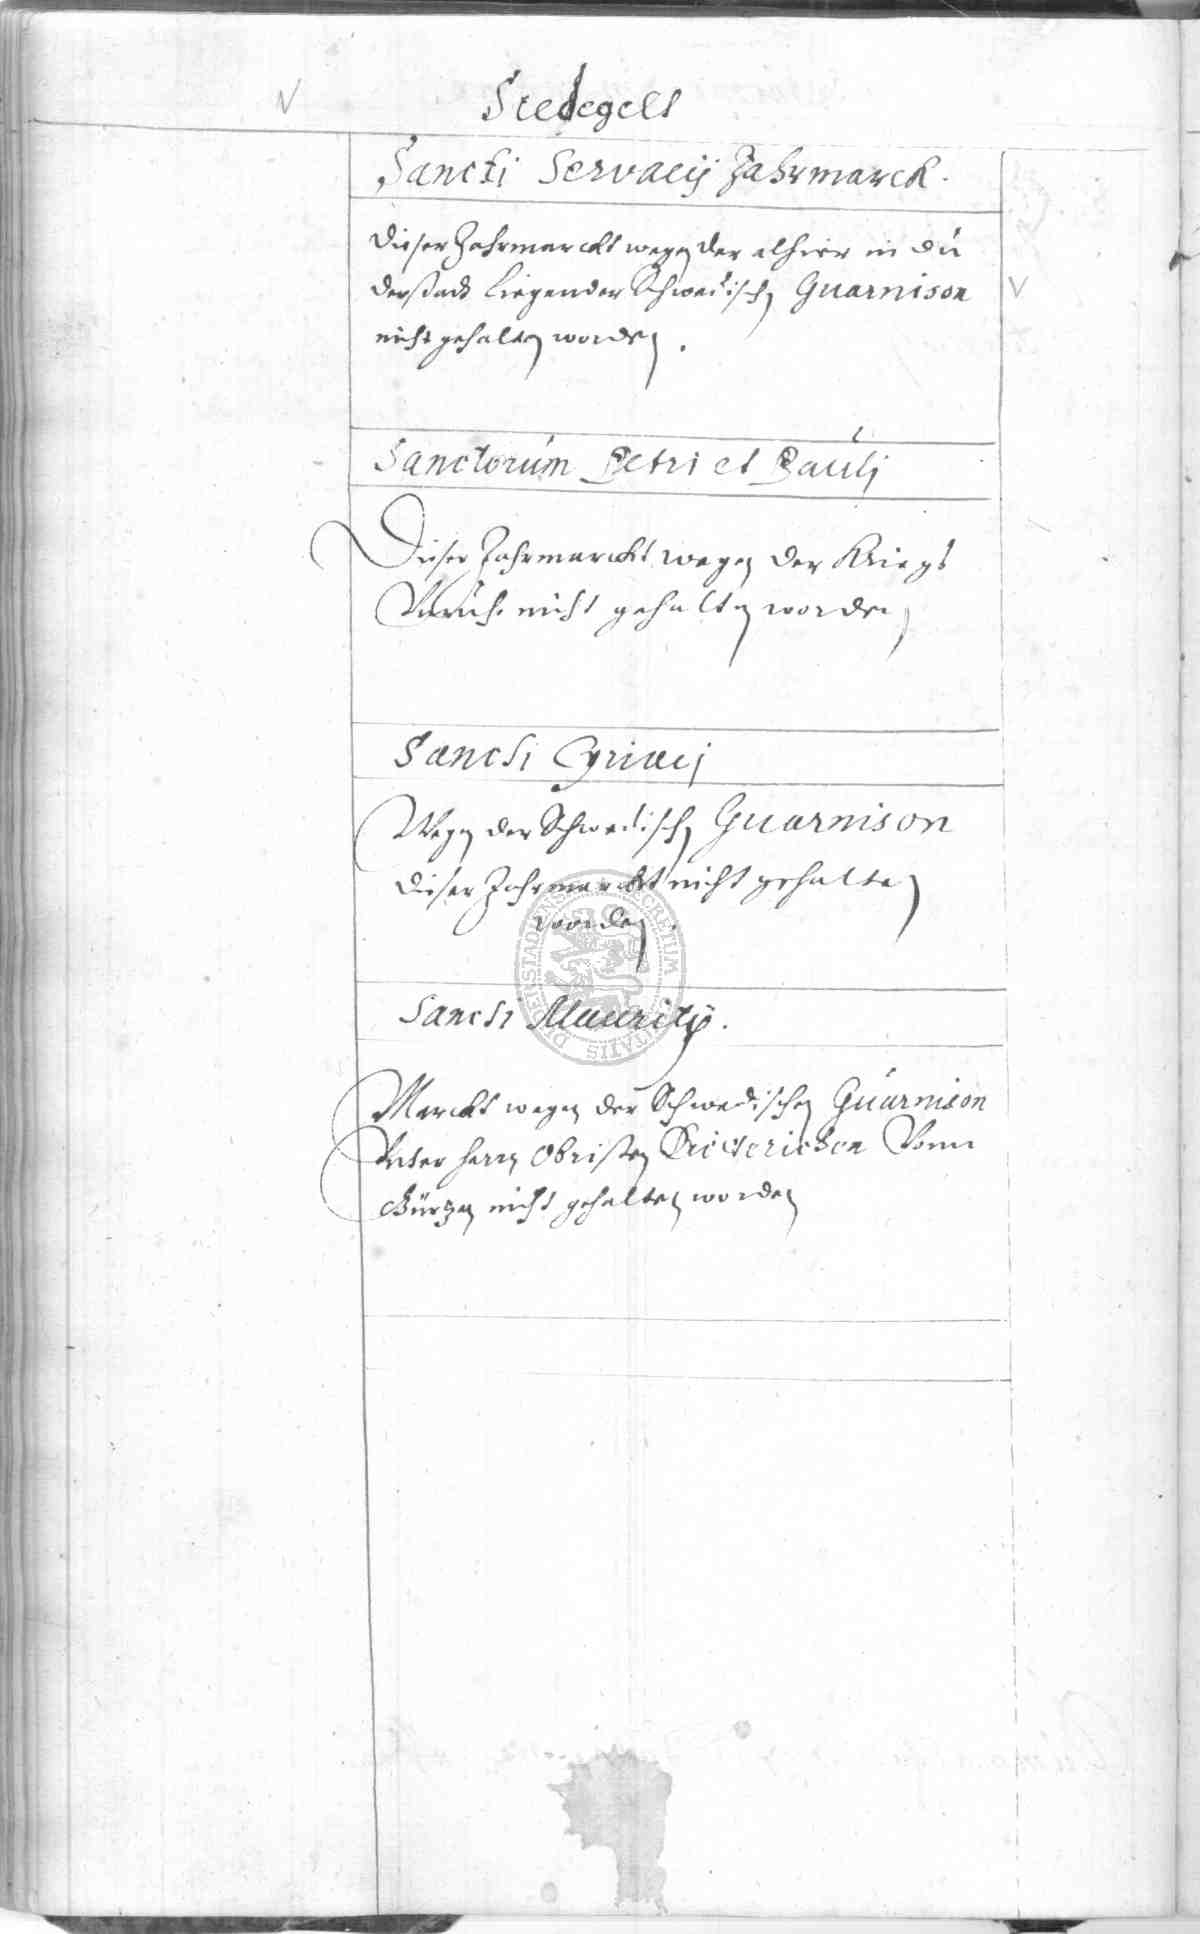 Stedegelt
Sancti Servacij Jahrmarck.
Dieser Jahrmarckt wegen der alhier in Du
derstadt liegender Schwedischen Guarnison
nicht gehalten worden.
Sanctorum Petri et Pauli
Dieser Jahrmarckt wegen der Kriegs
Vnruhe nicht gehalten worden
Sancti Cyriaci
Wegen der Schwedischen Guarnison
dieser Jahrmarckt nicht gehalten
worden.
Sancti Mauritij.
Marckt wegen der Schwedischen Guarnison
Vnter Herrn Obristen Vonn
nicht gehalten worden